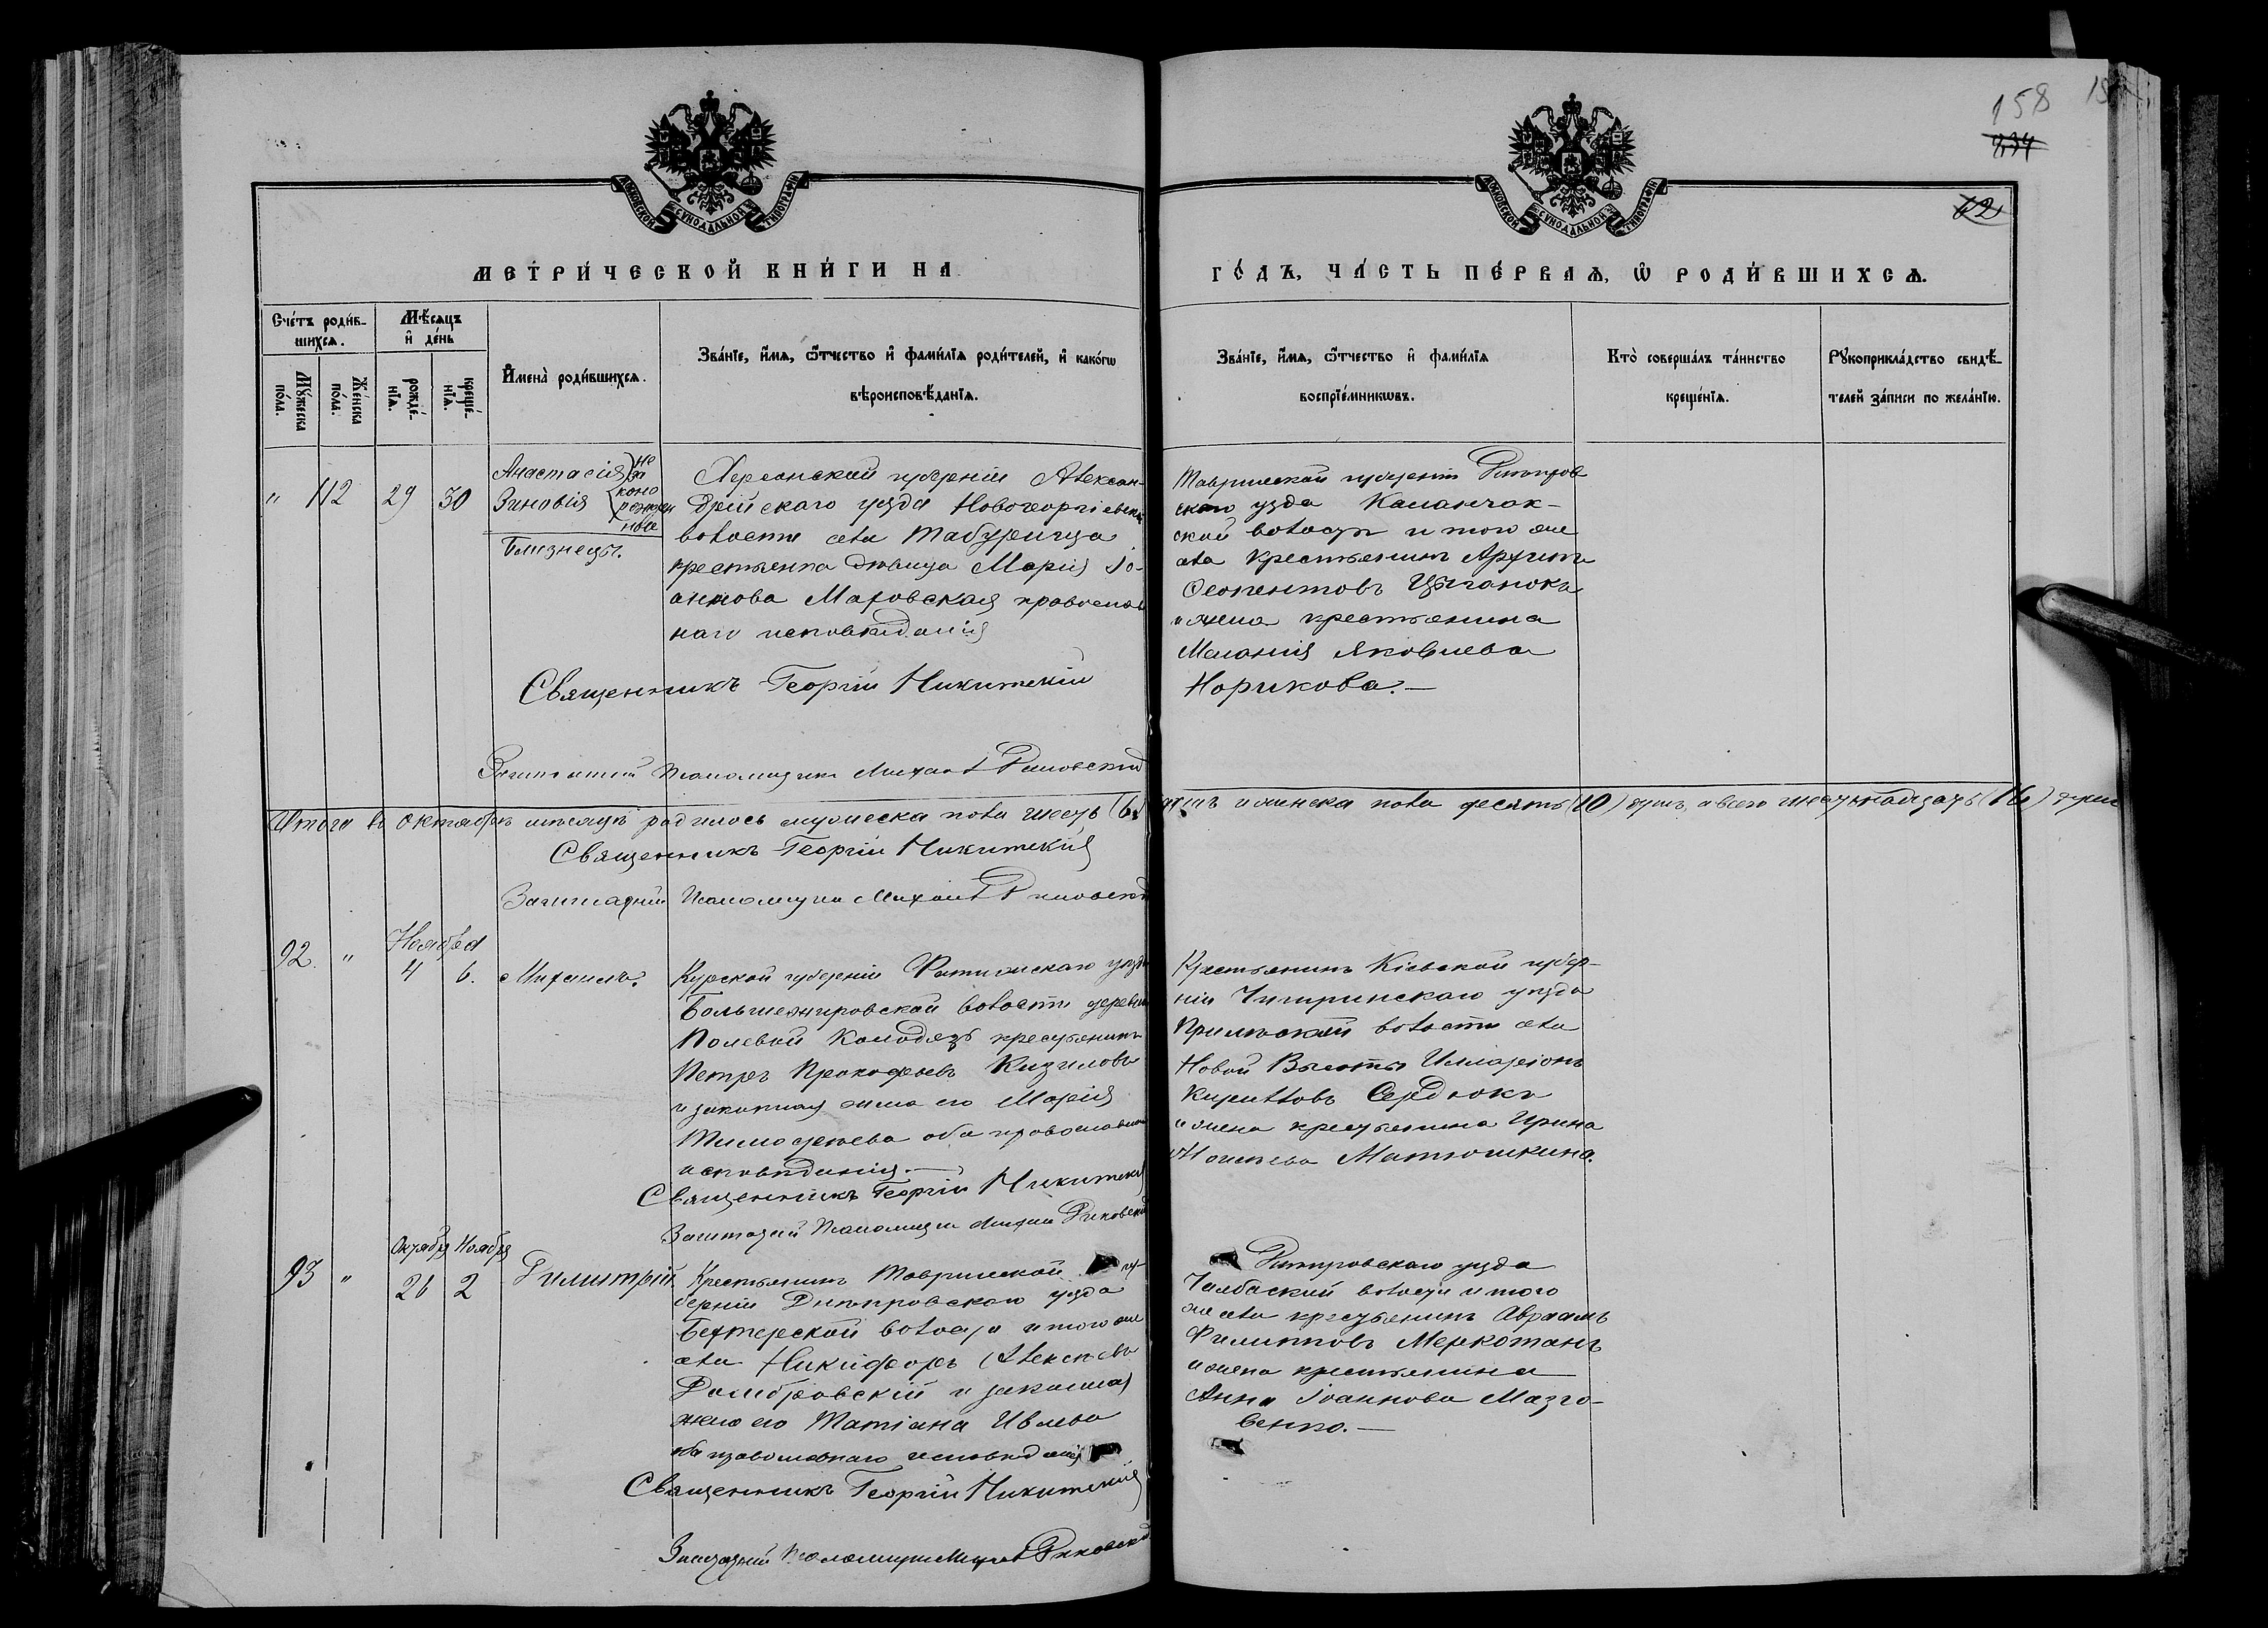 158
434
МОСКОВСКОЙ СѴНОДАЛЬНОЙ ТИПОГРАФІИ
МОСКОВСКОЙ СѴНОДАЛЬНОЙ ТИПОГРАФІИ
62
МЕТРИ́ЧЕСКОЙ КНИ́ГИ НА
ГО́ДЪ, ЧА́СТЬ ПЕ́РВАѦ, Ѿ РОДИ́ВШИХСѦ.
Сче́тъ роди́в-
шихсѧ.
Мѣ́сяцъ
и҆ де́нь
Мꙋ́жеска по́ла.
Же́нска по́ла.
рожде́-нїѧ.
креще́-нїѧ.
И҆мена̀ роди́вшихсѧ.
Зва́нїе, и҆́мѧ, ѻ҆́тчество и҆ фами́лїѧ роди́телей, и҆ како́гѡ
вѣроисповѣ́данїѧ.
Зва́нїе, и҆́мѧ, ѻ҆́тчество и҆ фами́лїѧ
воспрїе́мникѡвъ.
Кто̀ соверша́лъ та́инство
креще́нїѧ.
Рꙋкоприкла́дство свидѣ́-
телей за́писи по жела́нїю.
" 112 29 30
Анастасія
Зиновія
не
за
коно
рожден
ные
Близнецы.
Херсонской губерніи Алексан-
дрійскаго уѣзда Новогеоргіевской
волости села Табурища
крестьянка дѣвица Марія Іо-
аннова Маховская православ
наго исповѣданія
Священникъ Георгій Никитскій
Таврической губерніи Днѣпров
скаго уѣзда Каланчак-
ской волости и того же
села крестьянинъ Архипъ
Леонтовъ Цыганокъ
и жена крестьянина
Меланія Яковлева
Норикова.—
Заштатный Пономарь Михаилъ
Итого въ октябрѣ мѣсяцѣ родилось мужеска пола шесть (6)
душъ и женска пола десять (10) душъ, а всего шестьнадцать (16) душъ
Священникъ Георгій Никитскій
Заштатный Пономарь Михаилъ
92. " Ноября
4 6. Михаилъ.
Курской губерніи Фатежскаго уѣзда
Большежировской волости деревни
Полевой Колодязь крестьянинъ
Петръ Прокофьевъ Кизиловъ
и законная жена его Марія
Тимофеева оба православнаго
исповѣданія.—
Священникъ Георгій Никитскій
Заштатный Пономарь Михаилъ
Крестьянинъ Кіевской губер-
ніи Чигиринскаго уѣзда
волости села
Новой Илларіонъ
Кирилловъ Сердюкъ
и жена крестьянина Ирина
Матюшкина.
Октября Ноября
93 " 26 2 Димитрій.
Крестьянинъ Таврической гу-
берніи Днѣпровскаго уѣзда
Бехтерской волости и того же
села Никифоръ Алексѣевъ
Домбровскій и законная
жена его Татіана Ивлева
оба православнаго исповѣданія
Священникъ Георгій Никитскій
Заштатный Пономарь Михаилъ
Днѣпровскаго уѣзда
Чалбаской волости и того
же села крестьянинъ Авраамъ
Филипповъ Меркотанъ
и жена крестьянина
Анна Іоаннова Мазго-
венко.—